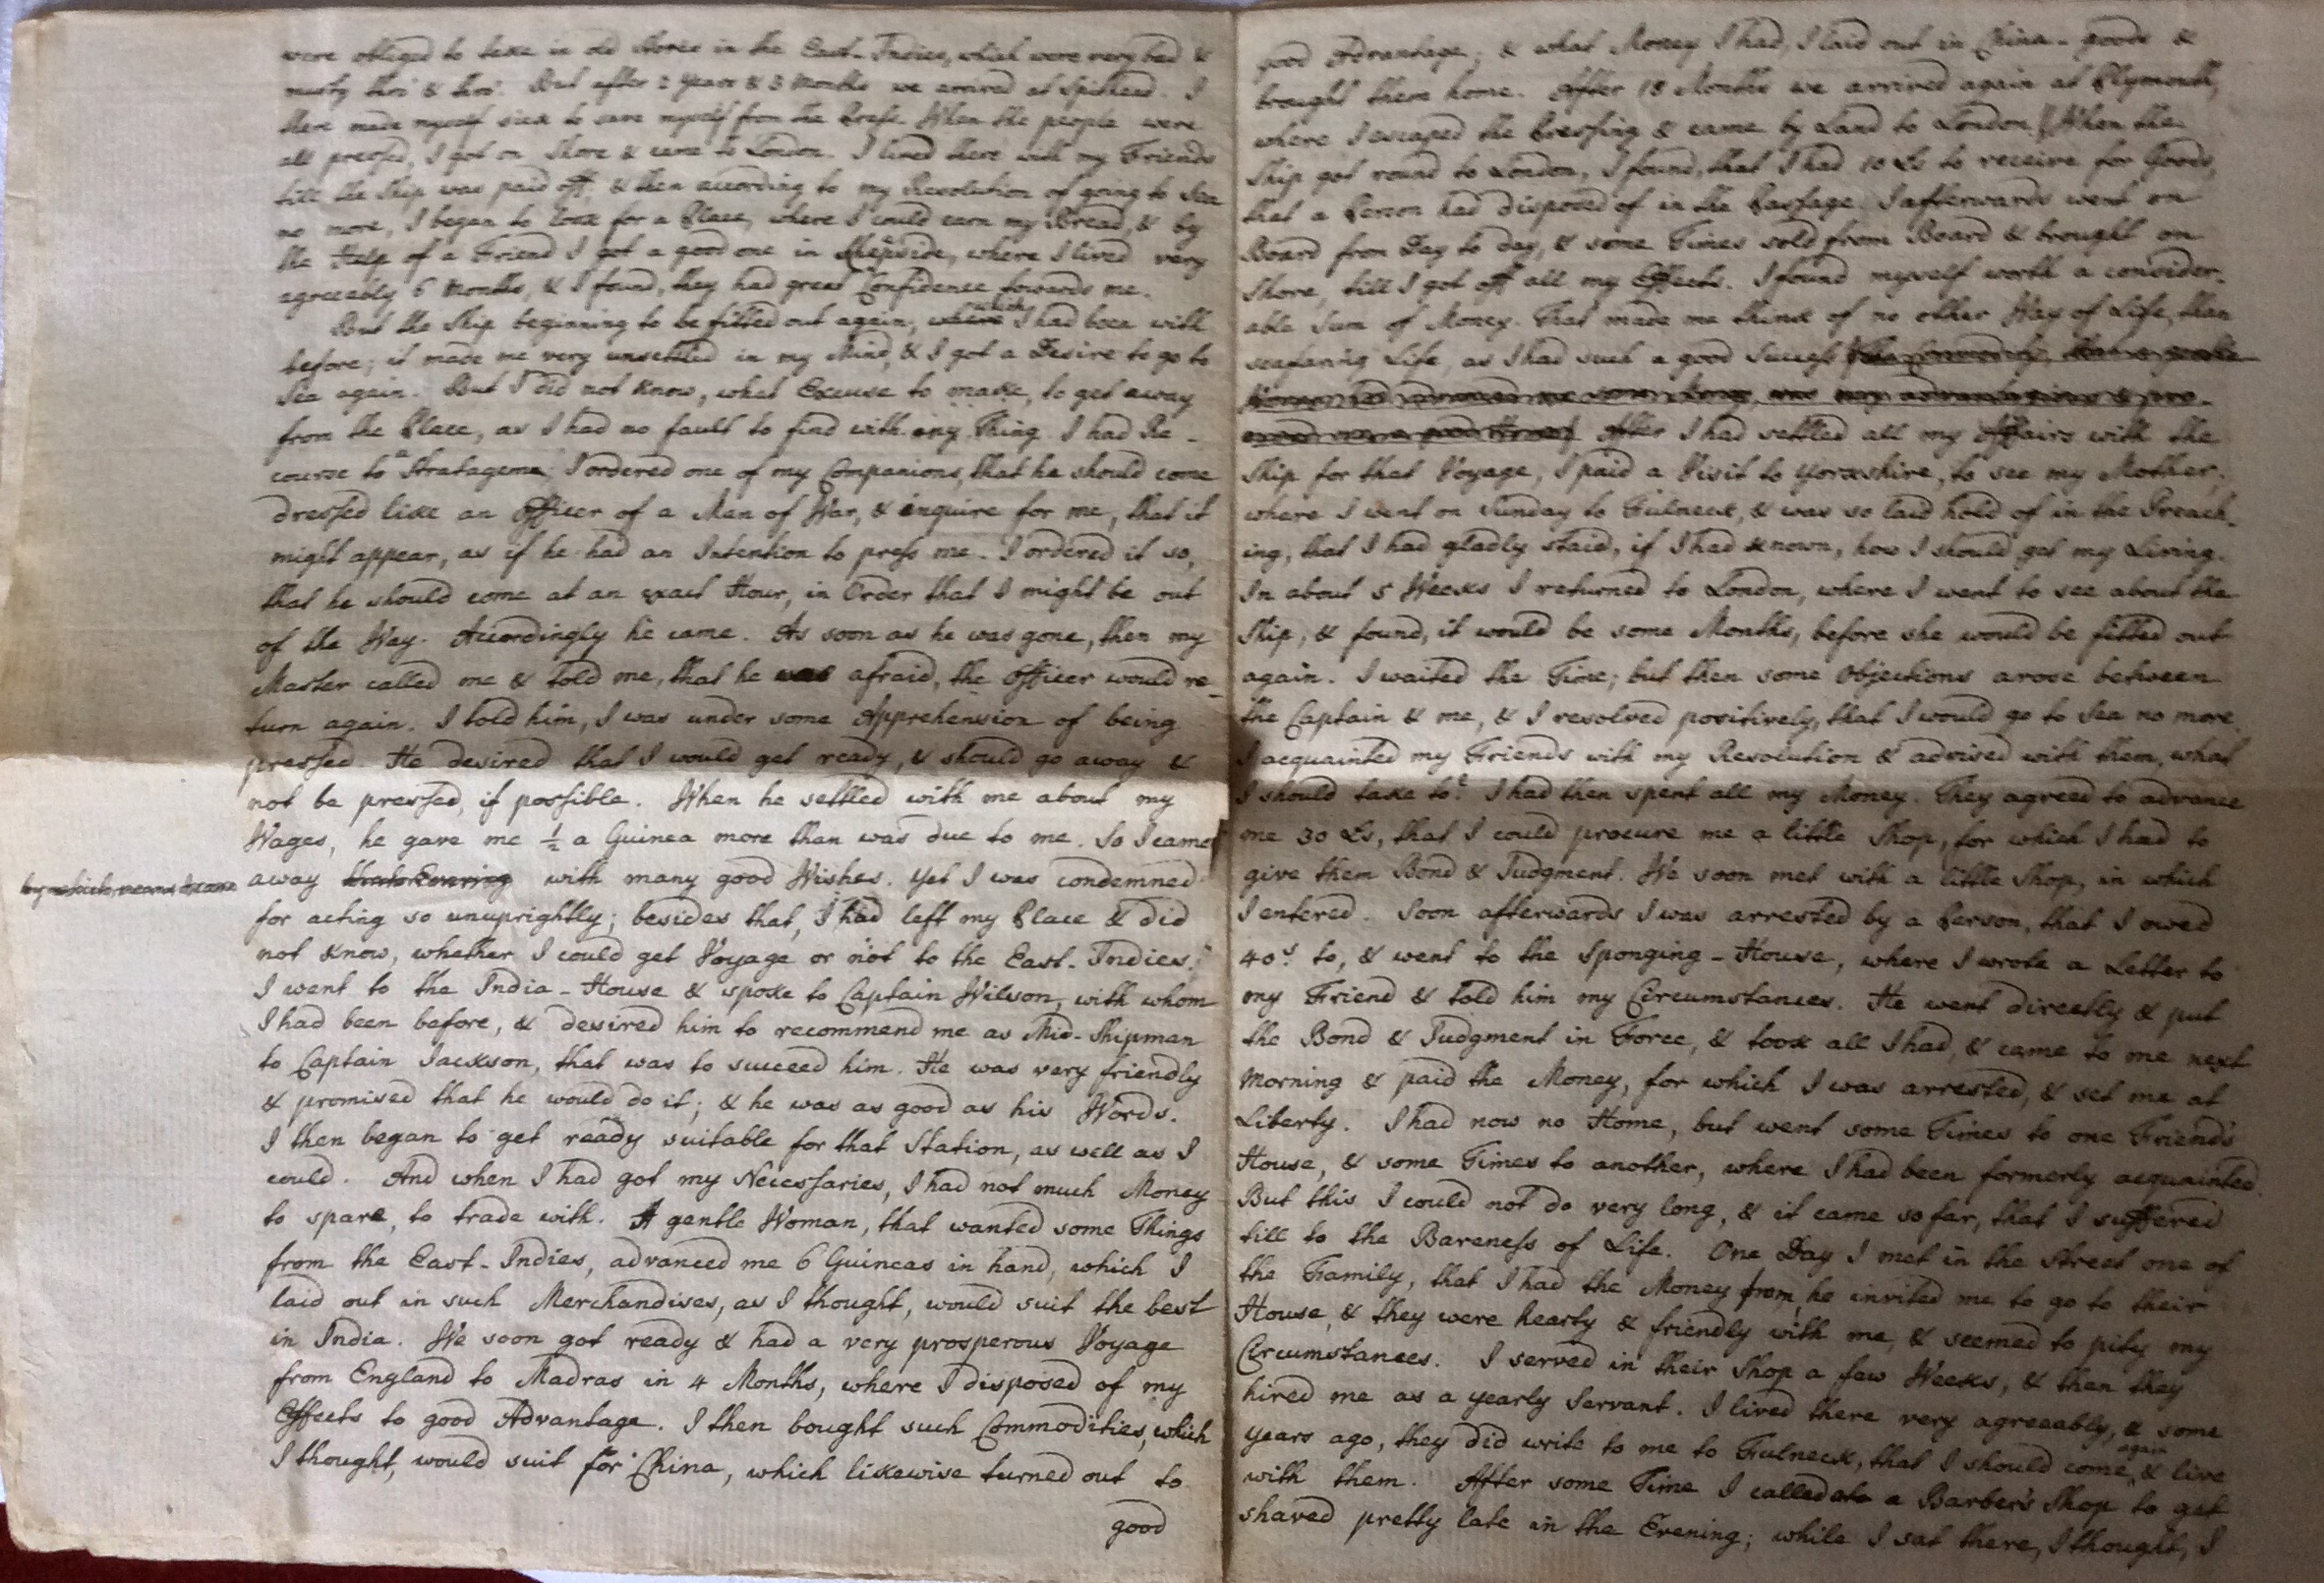 were obliged to take in old Stores in the East-Indies, which were very bad &
rusty thro' & thro'. But after 2 years & 3 Months we arrived at Spithead. I
there made myself sick to save myself from the Press. When the people were
all pressed, I got on Shore & came to London. I lived there with my Friends
till the Ship was paid off, & then according to my Resolution of going to Sea
no more, I began to look for a Place, where I could earn my Bread, & by
the Help of a Friend I got a good one in Cheapside, where I lived very
agreeably 6 Months, & I found, they had great Confidence towards me.
But the Ship beginning to be fitted out again, which I had been with
before; it made me very unsettled in my Mind, & I got a Desire to go to
Sea again. But I did not know, what Excuse to make, to get away
from the Place, as I had no fault to find with any Thing. I had Re-
course to a Stratageme; I ordered one of my Companions, that he should come
dressed like an Officer of a Man of War, & enquire for me, that it
might appear, as if he had an Intention to press me. I ordered it so,
that he should come at an exact Hour, in Order that I might be out
of the Way. Accordingly he came. As soon as he was gone, then my
Master called me & told me, that he was afraid, the Officer would re-
turn again. I told him, I was under some Apprehension of being
pressed. He desired that I would get ready, & should go away &
not be pressed, if possible. When he settled with me about my
Wages, he gave me ½ a Guinea more than was due to me. So I came
by which means I came away that Evening with many good Wishes. Yet I was condemned
for acting so unuprightly; besides that, I had left my Place & did
not know, whether I could get Voyage or not to the East-Indies.
I went to the India-House & spoke to Captain Wilson, with whom
I had been before, & desired him to recommend me as Mid-Shipman
to Captain Jackson, that was to succeed him. He was very friendly
& promised that he would do it; & he was as good as his Words.
I then began to get ready suitable for that Station, as well as I
could. And when I had got my Necessaries, I had not much Money
to spare, to trade with. A gentle Woman, that wanted some Things
from the East-Indies, advanced me 6 Guineas in hand, which I
laid out in such Merchandises, as I thought, would suit the best
in India. We soon got ready & had a very prosperous Voyage
from England to Madras in 4 Months, where I disposed of my
Effects to good Advantage. I then bought such Commodities, which
I thought, would suit for China, which likewise turned out to
good
good Advantage; & what Money I had, I laid out in China-goods &
brought them home. After 18 Months we arrived again at Plymouth,
where I escaped the Pressing & came by Land to London. When the
Ship got round to London, I found, that I had 10 Ls to receive for Goods,
that a Person had disposed of in the Passage. I afterwards went on
Board from Day to day, & some Times sold from Board & brought on
Shore, till I got off all my Effects. I found myself worth a consider-
able Sum of Money. That made me think of no other Way of Life, than
seafaring Life, as I had such a good Success
After I had settled all my Affairs with the
Ship for that Voyage, I paid a Visit to Yorkshire, to see my Mother,
where I went on Sunday to Fulneck, & was so laid hold of in the Preach-
ing, that I had gladly staid, if I had known, how I should get my Living.
In about 5 Weeks I returned to London, where I went to see about the
Ship, & found, it would be some Months, before she would be fitted out
again. I waited the Time; but then some Objections arose between
the Captain & me, & I resolved positively, that I would go to Sea no more.
I acquainted my Friends with my Resolution & advised with them, what
I should take to? I had then spent all my Money. They agreed to advance
me 30 Ls, that I could procure me a little Shop, for which I had to
give them Bond & Judgment. We soon met with a little Shop, in which
I entered. Soon afterwards I was arrested by a Person, that I owed
40s. to, & went to the Sponging-House, where I wrote a Letter to
my Friend & told him my Circumstances. He went directly & put
the Bond & Judgment in Force, & took all I had, & came to me next
Morning & paid the Money, for which I was arrested, & set me at
Liberty. I had now no Home, but went some Times to one Friend's
House, & some Times to another, where I had been formerly acquainted.
But this I could not do very long, & it came so far, that I suffered
till to the Bareness of Life. One Day I met in the Street one of
the Family, that I had the Money from, he invited me to go to their
House, & they were hearty & friendly with me, & seemed to pity my
Circumstances. I served in their Shop a few Weeks, & then they
hired me as a yearly Servant. I lived there very agreeably, & some
years ago, they did write to me to Fulneck, that I should come again & live
with them. After some Time I called at a Barber's Shop to get
shaved pretty late in the Evening; while I sat there, I thought, I